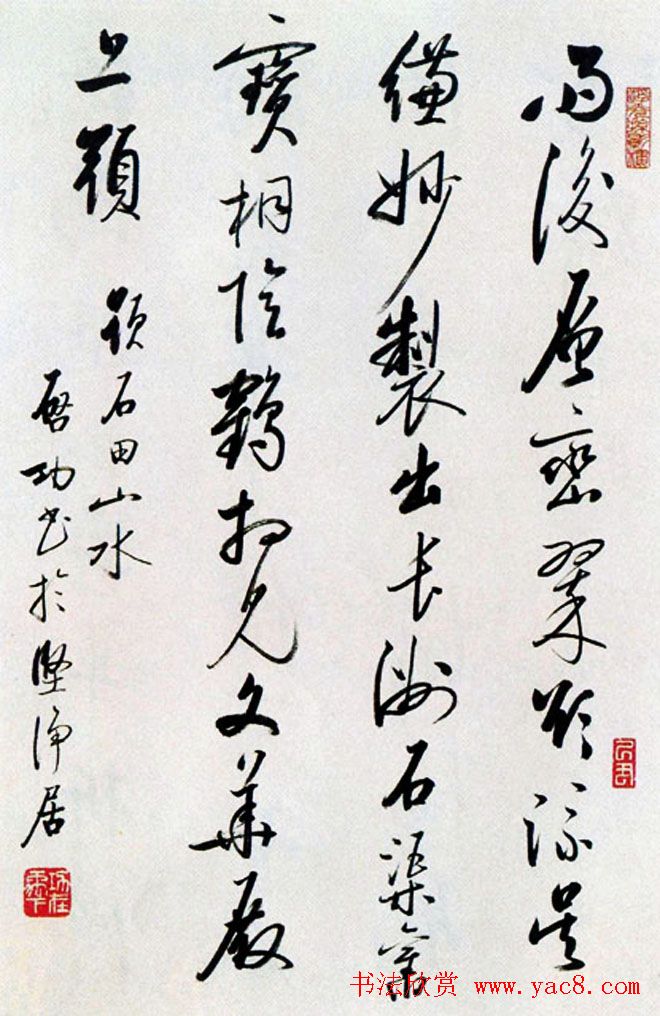 雨後層巒翠欲流吳
縑妙製出長洲石渠舊
寶桐陰鶴相見文華殿
上頭 題石田山水
啟功書於堅淨居
书法欣赏 www.yac8.com